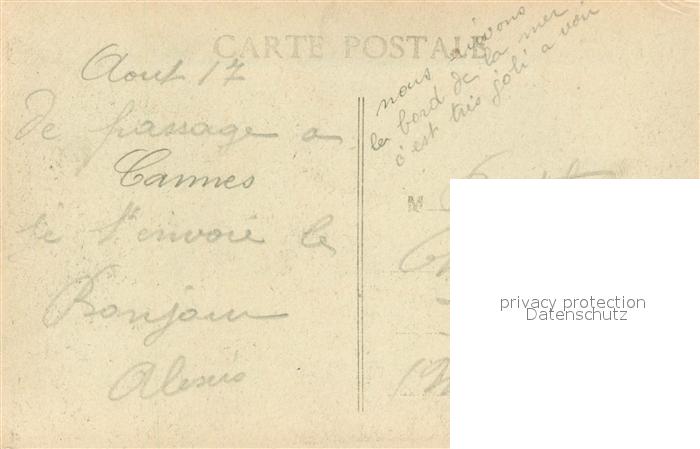 CARTE POSTALE
Aout 17
De passage a
Cannes
je t'envoie le
Bonjour
Alexis
nous suivons
le bord de la mer
c'est très joli a voir
M
privacy protection
Datenschutz